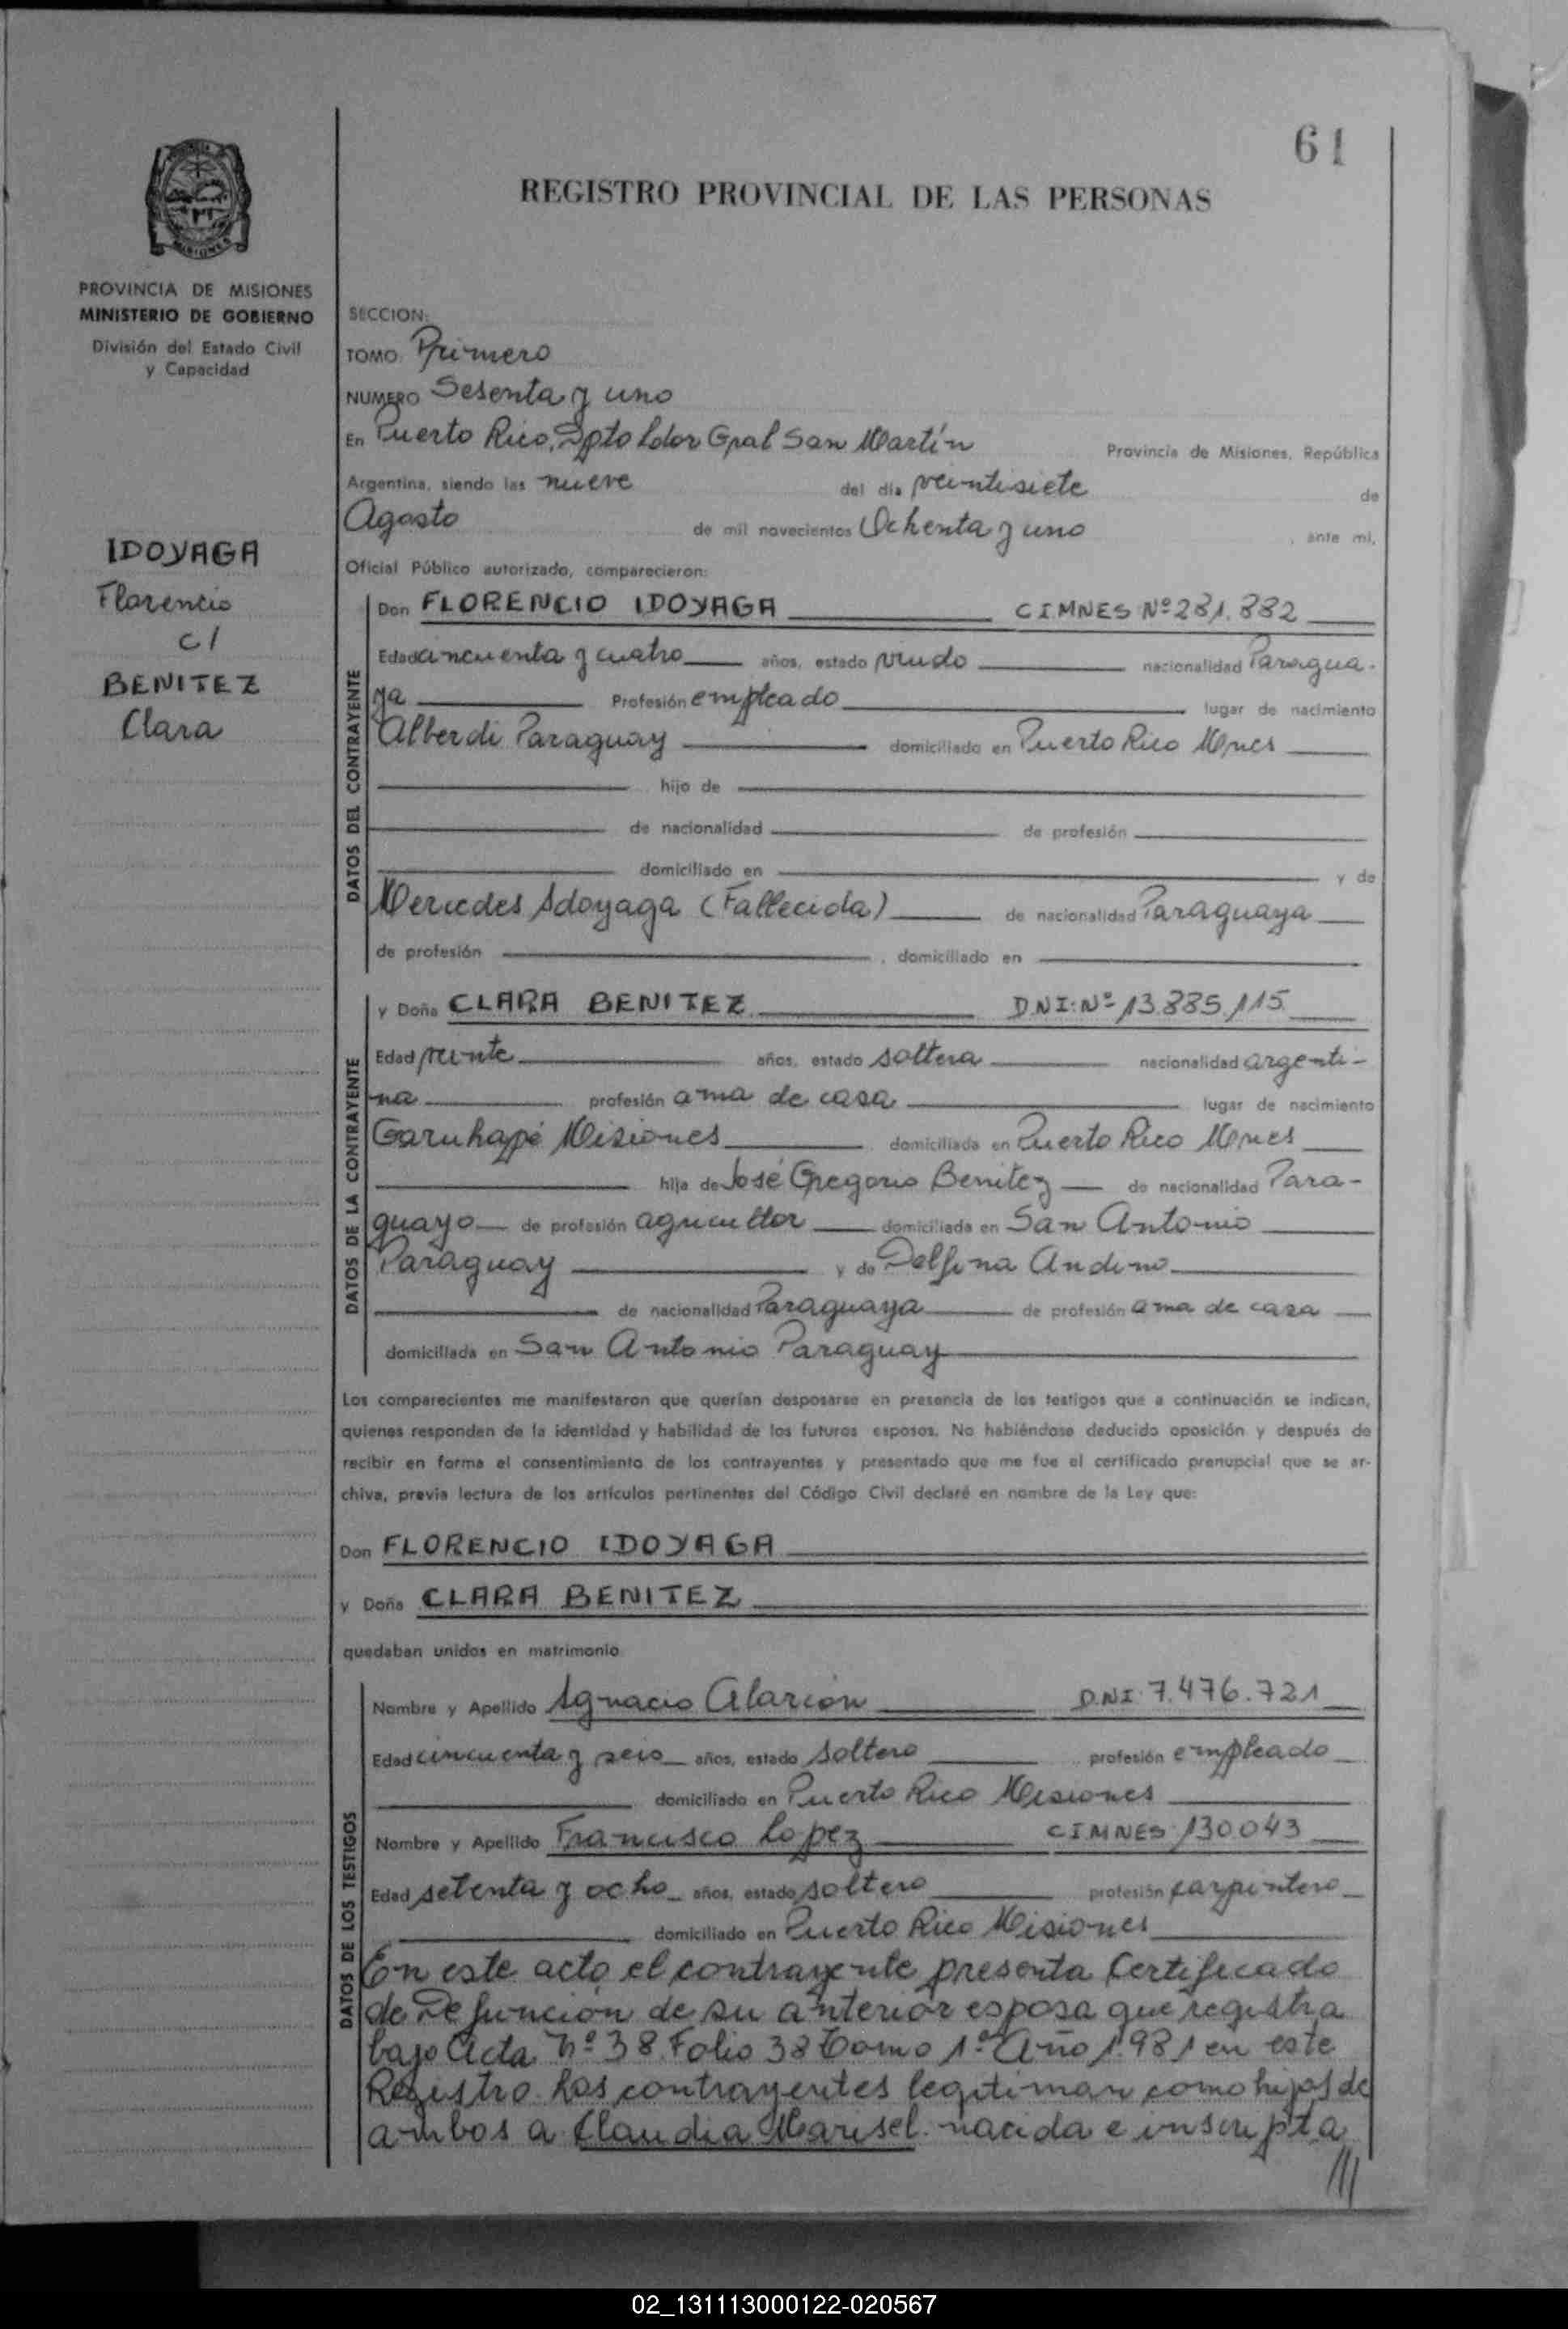 61
REGISTRO PROVINCIAL DE LAS PERSONAS
MISIONES
PROVINCIA DE MISIONES
MINISTERIO DE GOBIERNO
División del Estado Civil
y Capacidad
IDOYAGA
Florencio
c/
BENITEZ
Clara
SECCION:
TOMO: Primero
NUMERO Sesenta y uno
En Puerto Rico, Dpto Ldor Gral San Martín Provincia de Misiones, República
Argentina, siendo las nueve del día veintisiete de
Agosto de mil novecientos Ochenta y uno, ante mi,
Oficial Público autorizado, comparecieron:
DATOS DEL CONTRAYENTE
Don FLORENCIO IDOYAGA C.I.MNES Nº 281.882
Edad cincuenta y cuatro años, estado viudo nacionalidad Paragua-
ya Profesión empleado lugar de nacimiento
Alberdi Paraguay domiciliado en Puerto Rico Mnes
hijo de
de nacionalidad de profesión
domiciliado en y de
Mercedes Idoyaga (Fallecida) de nacionalidad Paraguaya
de profesión , domiciliado en
DATOS DE LA CONTRAYENTE
y Doña CLARA BENITEZ D.N.I: Nº 13.885.115
Edad veinte años, estado soltera nacionalidad argenti-
na profesión ama de casa lugar de nacimiento
Garuhapé Misiones domiciliada en Puerto Rico Mnes
hija de José Gregorio Benitez de nacionalidad Para-
guayo de profesión agricultor domiciliada en San Antonio
Paraguay y de Delfina Andino
de nacionalidad Paraguaya de profesión ama de casa
domiciliada en San Antonio Paraguay
Los comparecientes me manifestaron que querían desposarse en presencia de los testigos que a continuación se indican,
quienes responden de la identidad y habilidad de los futuros esposos. No habiéndose deducido oposición y después de
recibir en forma el consentimiento de los contrayentes y presentado que me fue el certificado prenupcial que se ar-
chiva, previa lectura de los artículos pertinentes del Código Civil declaré en nombre de la Ley que:
Don FLORENCIO IDOYAGA
y Doña CLARA BENITEZ
quedaban unidos en matrimonio
DATOS DE LOS TESTIGOS
Nombre y Apellido Ignacio Alarcón D.N.I. 7.476.721
Edad cincuenta y seis años, estado soltero profesión empleado
domiciliado en Puerto Rico Misiones
Nombre y Apellido Francisco Lopez C.I.MNES 130043
Edad setenta y ocho años, estado soltero profesión carpintero
domiciliado en Puerto Rico Misiones
En este acto el contrayente presenta Certificado
de Defunción de su anterior esposa que registra
bajo Acta Nº 38 Folio 38 Tomo 1º Año 1.981 en este
Registro. Los contrayentes legitiman como hijos de
ambos a Claudia Marisel. nacida e inscripta
///
02_131113000122-020567